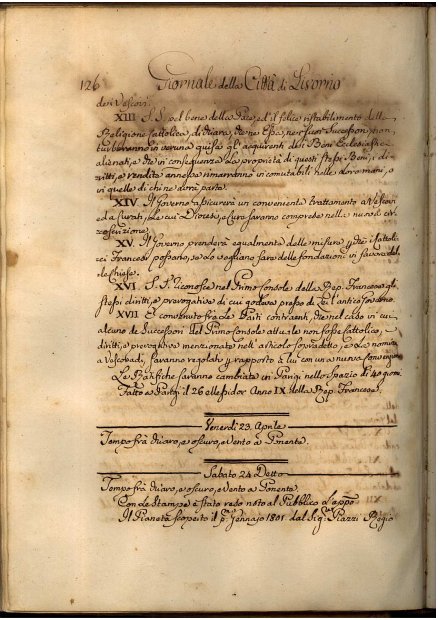 126 Giornale della Città di Livorno
dei Vescovi.
XIII S. S. pel bene della Pace, ed il felice ristabilimento della
Religione Cattolica, dichiara, che nè Essa, nè i suoi Successori, non
turberanno in veruna guisa gli acquirenti dei Beni Ecclesiastici
alienati, e che in conseguenza la proprietà di questi stessi Beni, i di-
ritti, e rendite annesse rimarranno incomutabili nelle loro mani, o
in quelle di chi ne avrà parte.
XIV. Il Governo assicurerà un conveniente trattamento a Vescovi
ed a Curati, le cui Diocesi, e Cure saranno comprese nella nuova cir-
coscrizione.
XV. Il Governo prenderà egualmente delle misure, perchè i Cattoli-
ci Francesi possano, se lo vogliano fare delle fondazioni in favore del-
le Chiese.
XVI S. S. riconosce nel Primo Console della Rep. Francese gli
stessi diritti, e prerogative di cui godeva presso di Lui l'antico Governo.
XVII È convenuto frà le Parti contraenti, che nel caso in cui
alcuno de Successori del Primo Console attuale non fosse Cattolico, i
diritti, e prerogative menzionate nell'articolo sopradetto, e la nomina
a Vescovadi, saranno regolati per rapporto a lui con una nuova
Le Ratifiche saranno cambiate in Parigi nello spazio di 40 giorni
Fatto a Parigi il 26 Messidor Anno IX della Rep. Francese.
Venerdì 23. Aprile
Tempo frà chiaro, e oscuro, e Vento a Ponente.
Sabato 24 Detto
Tempo frà chiaro, e oscuro, e Vento a Ponente
Con le Stampe è stato reso noto al Pubblico L'appo
Il Pianeta scoperto il p.º Gennajo 1801 dal Sig.r Piazzi Regio